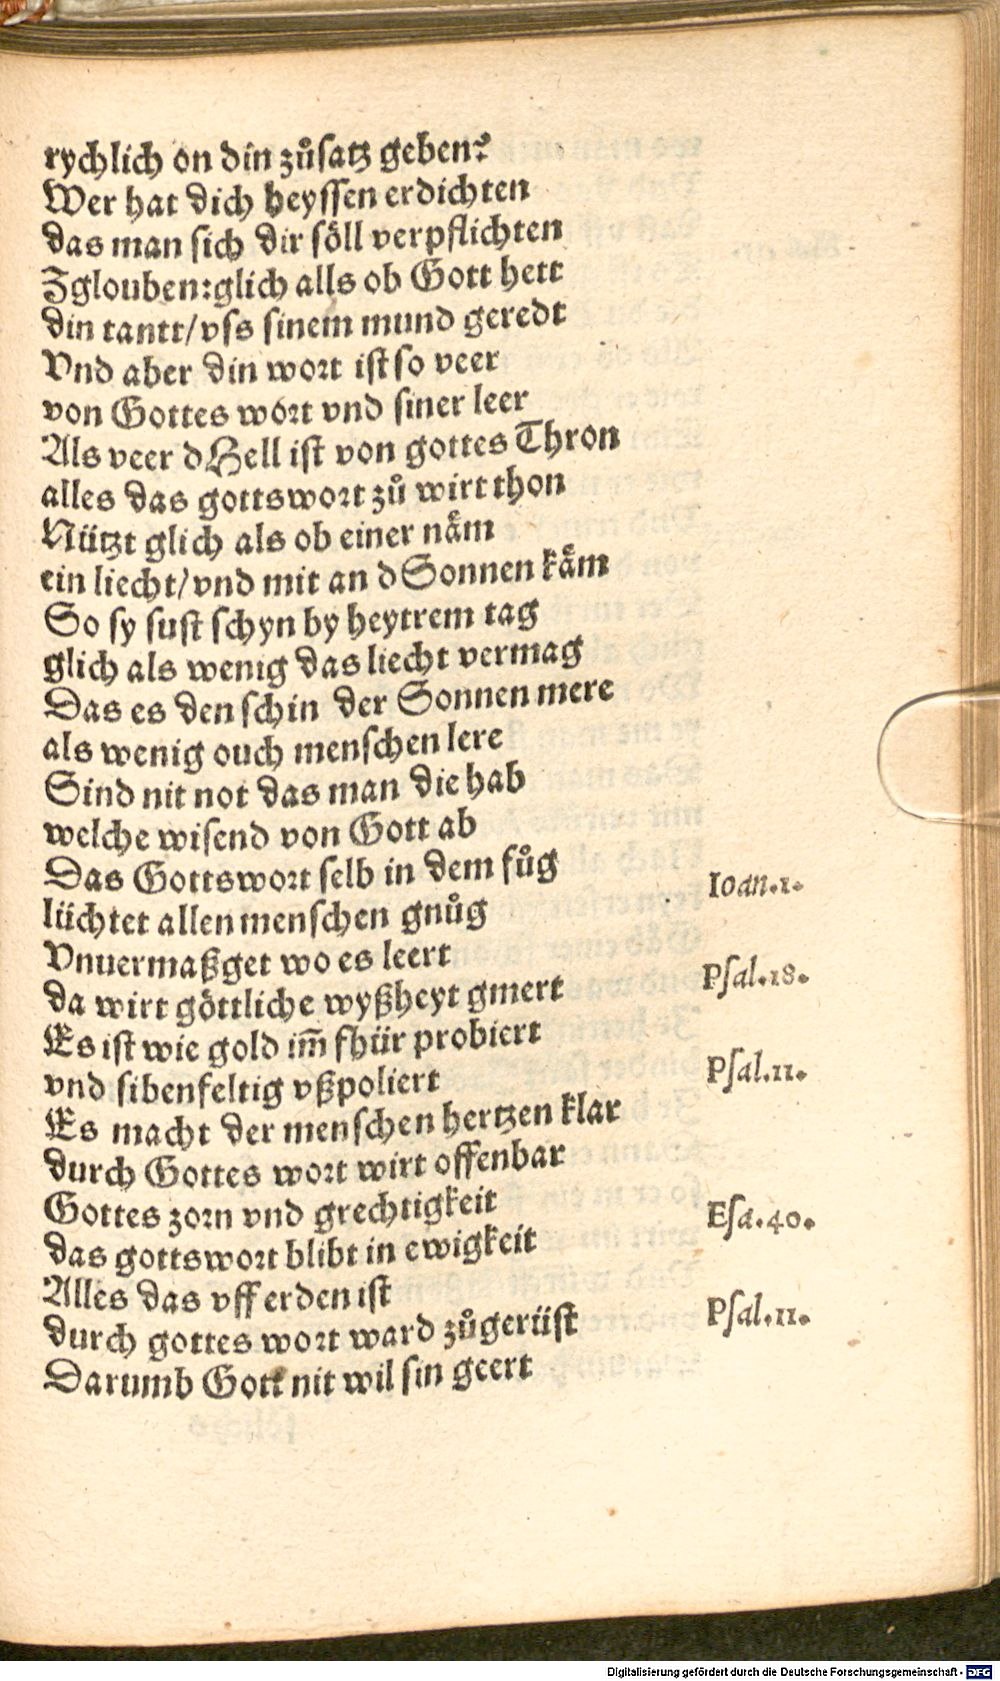 rychlich on din zůsatz geben?
Wer hat dich heyssen erdichten
das man sich dir söll verpflichten
Zglouben:glich alls ob Gott hett
din tantt/vss sinem mund geredt
Vnd aber din wort ist so veer
von Gottes wort vnd siner leer
Als veer d Hell ist von gottes Thron
alles das gottswort zů wirt thon
Nützt glich als ob einer näm
ein liecht/vnd mit an d Sonnen käm
So sy sust schyn by heytrem tag
glich als wenig das liecht vermag
Das es den schin der Sonnen mere
als wenig ouch menschen lere
Sind nit not das man die hab
welche wisend von Gott ab
Das Gottswort selb in dem fůg
lüchtet allen menschen gnůg
Ioan.1.
Vnuermaßget wo es leert
da wirt göttliche wyßheyt gmert
Psal.18.
Es ist wie gold im̃ fhür probiert
vnd sibenfeltig vßpoliert
Psal.11.
Es macht der menschen hertzen klar
durch Gottes wort wirt offenbar
Gottes zorn vnd grechtigkeit
das gottswort blibt in ewigkeit
Esa.40.
Alles das vff erden ist
durch gottes wort ward zůgerüst
Psal.11.
Darumb Gott nit wil sin geert
Digitalisierung gefördert durch die Deutsche Forschungsgemeinschaft - DFG